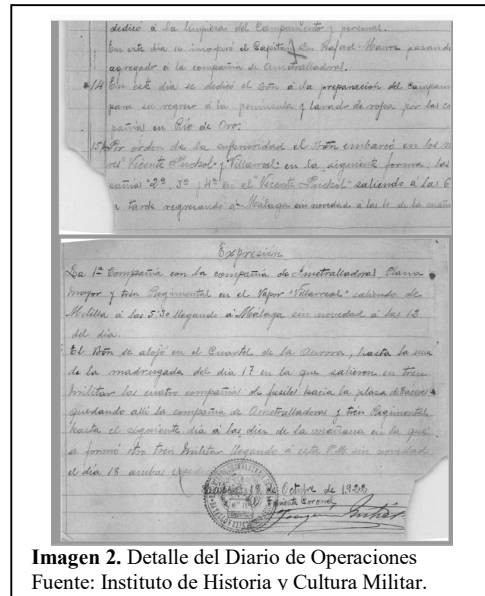 dedicó á la limpieza del Campamento y personal.
En este dia se incorporó el Capitán Don Rafael pasando
agregado á la compañia de Ametralladoras.
14 En este dia se dedicó el Bón á la preparación del Campam
para su regreso á la peninsula y lavado de ropa por las co
pañias en Rio de Oro.
15 Por orden de la superioridad el Bón embarcó en los
res "Vicente Puchol" y "Villarreal" en la siguiente forma; las
pañias 2ª, 3ª y 4ª en el "Vicente Puchol" saliendo á las 6
tarde regresando á Málaga sin novedad á las de la maña
Expresión
La 1ª Compañia con la compañia de Ametralladoras Plana
mayor y trén Regimental en el Vapor "Villarreal" saliendo de
Melilla á las 5'30 llegando á Málaga sin novedad á las 12
del dia.
El Bón se alojó en el Cuartel de la Aurora, hasta la una
de la madrugada del dia 17 en la que salieron en tren
militar las cuatro compañias de fusiles hacia la plaza de
quedando alli la compañia de Ametralladoras y trén Regimental
hasta el siguiente dia á las diez de la mañana en la que
se formó otro tren militar llegando á esta Plª sin novedad
el dia 18 ambas
18 de Octubre de 1922
El Teniente Coronel
Imagen 2. Detalle del Diario de Operaciones
Fuente: Instituto de Historia y Cultura Militar.